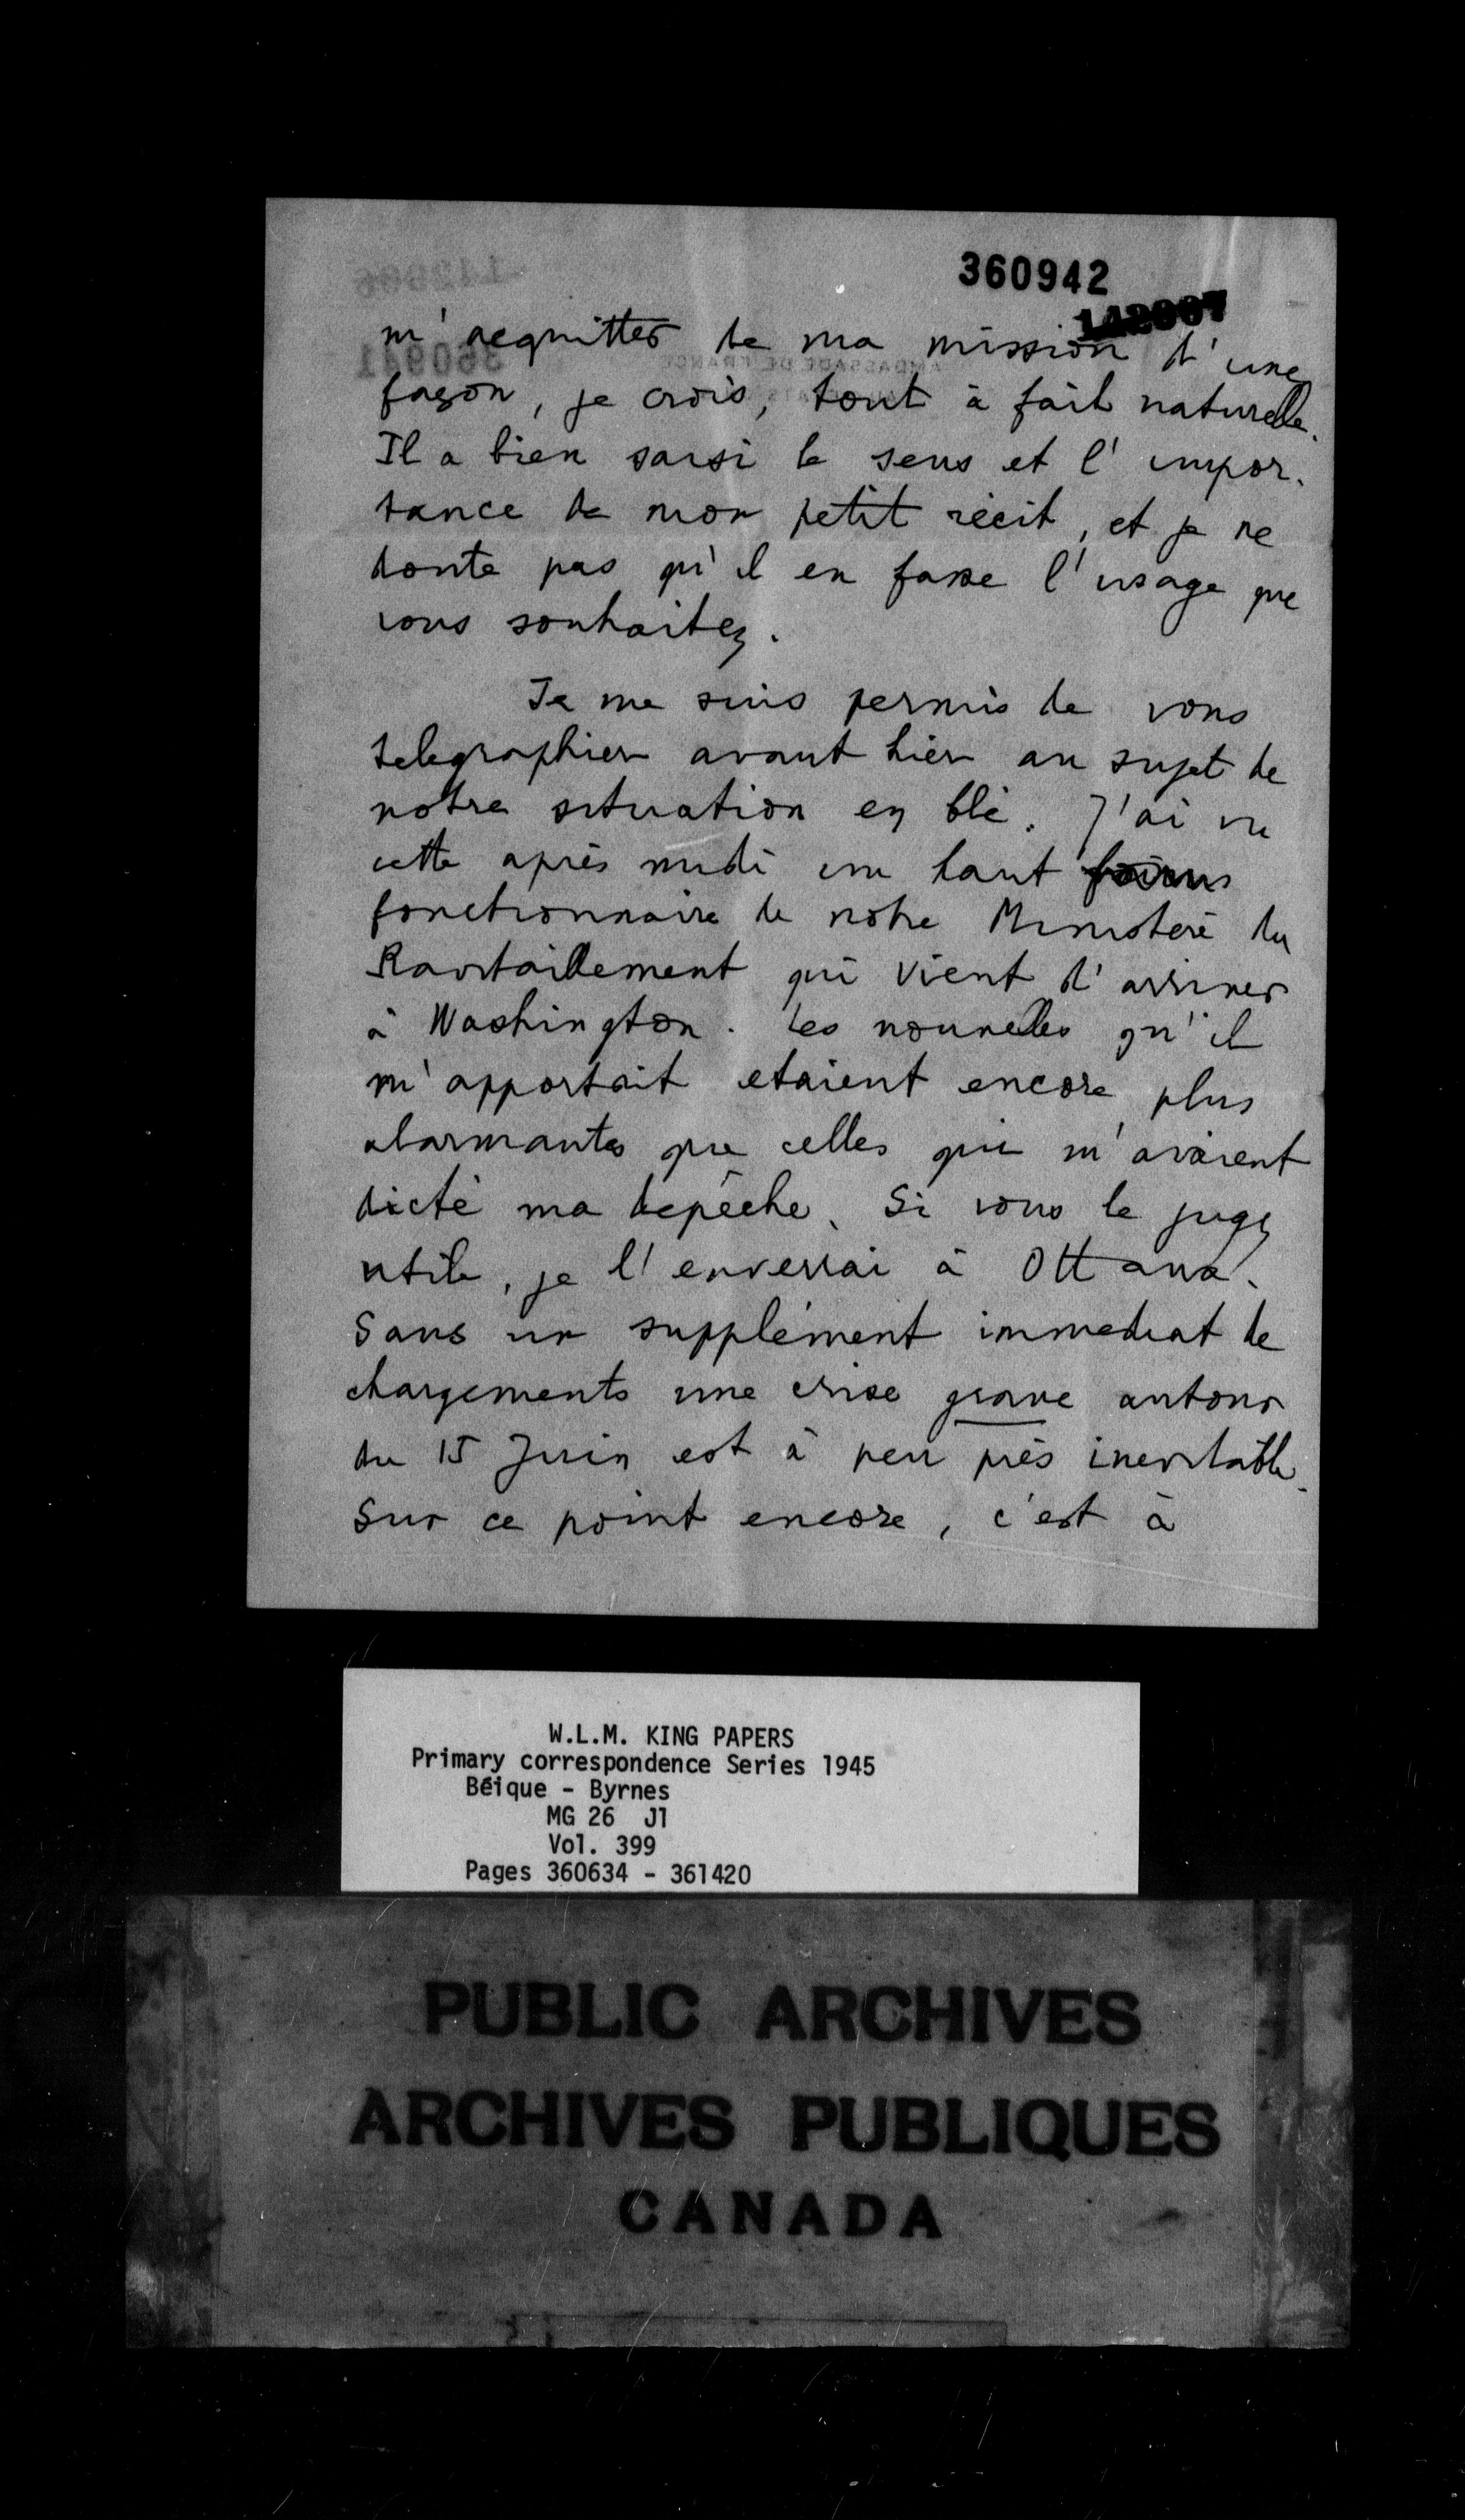 360942
142907
m'acquitter de ma mission d'une
façon, je crois, tout à fait naturelle.
Il a bien saisi le sens et l'impor-
tance de mon petit récit, et je ne
doute pas qu'il en fasse l'usage que
vous souhaitez.
Je me suis permis de vous
telegraphier avant hier au sujet de
notre situation en blé. J'ai vu
cette après midi un haut
fonctionnaire de notre Ministère du
Ravitaillement qui vient d'arriver
à Washington. Les nouvelles qu'il
m'apportait etaient encore plus
alarmantes que celles qui m'avaient
dicté ma depêche. Si vous le jugez
utile, je l'enverrai à Ottawa.
Sans un supplément immediat de
chargements une crise grave autour
du 15 Juin est à peu près inevitable.
Sur ce point encore, c'est à
W.L.M. KING PAPERS
Primary correspondence Series 1945
Béique - Byrnes
MG 26 J1
Vol. 399
Pages 360634 - 361420
PUBLIC ARCHIVES
ARCHIVES PUBLIQUES
CANADA